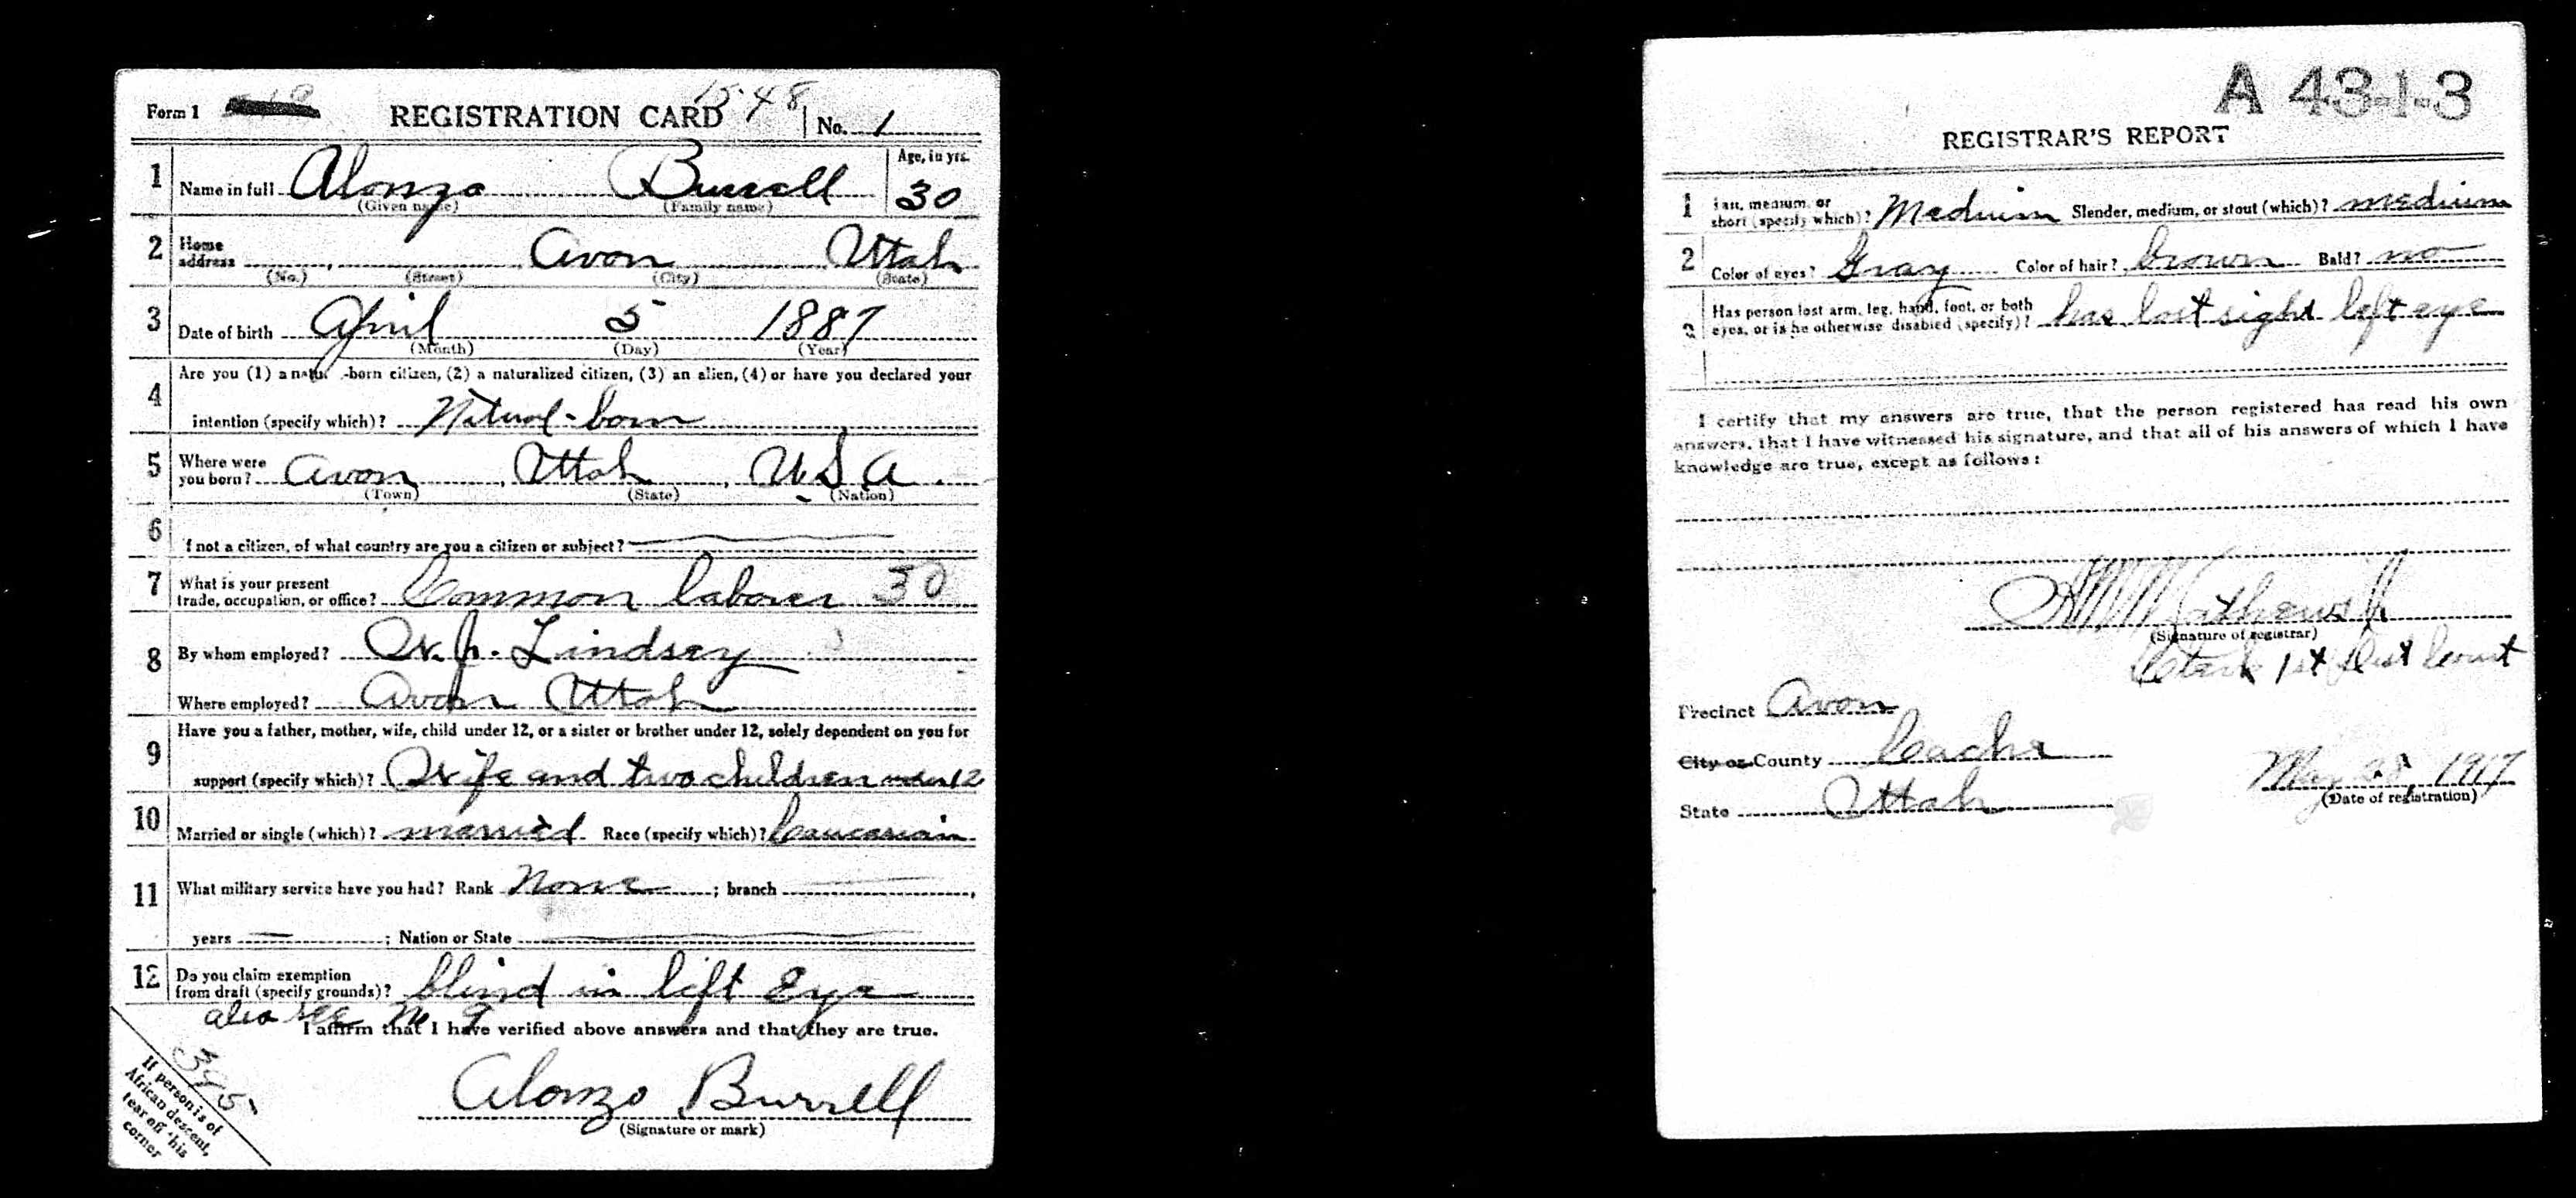 Form 1
1548
REGISTRATION CARD No. 1
1 Name in full Alonzo Burrell
(Given name) (Family name)
Age, in yrs.
30
2 Home address Avon Utah
(No.) (Street) (City) (State)
3 Date of birth April 5 1887
(Month) (Day) (Year)
4 Are you (1) a -born citizen, (2) a naturalized citizen, (3) an alien, (4) or have you declared your
intention (specify which)? Natural-born
5 Where were you born? Avon, Utah, U.S.A.
(Town) (State) (Nation)
6 If not a citizen, of what country are you a citizen or subject?
7 What is your present trade, occupation, or office? Common laborer 30
8 By whom employed? Lindsey
Where employed? Avon Utah
9 Have you a father, mother, wife, child under 12, or a sister or brother under 12, solely dependent on you for
support (specify which)? Wife and two children under 12
10 Married or single (which)? married Race (specify which)? Caucasian
11 What military service have you had? Rank None ; branch ,
years ; Nation or State
12 Do you claim exemption from draft (specify grounds)? blind in left Eye
also see No 9
I affirm that I have verified above answers and that they are true.
Alonzo Burrell
(Signature or mark)
If person is of
African descent,
tear off this
corner
A 43-1-3
REGISTRAR'S REPORT
1 Tall, medium, or short (specify which)? Medium Slender, medium, or stout (which)? medium
2 Color of eyes? Gray Color of hair? brown Bald? no
3 Has person lost arm, leg, hand, foot, or both eyes, or is he otherwise disabled (specify)? has lost sight left eye
I certify that my answers are true, that the person registered has read his own
answers, that I have witnessed his signature, and that all of his answers of which I have
knowledge are true, except as follows:
(Signature of registrar)
Clerk 1st Dist Court
Precinct Avon
City or County Cache
State Utah
May 1917
(Date of registration)